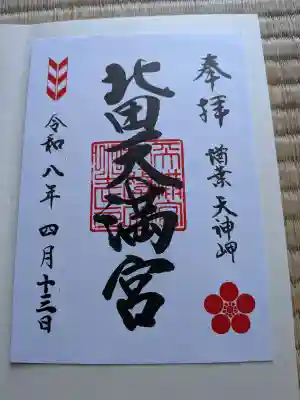 奉拝
楢葉 天神岬
北田天満宮
令和八年 四月 十三日